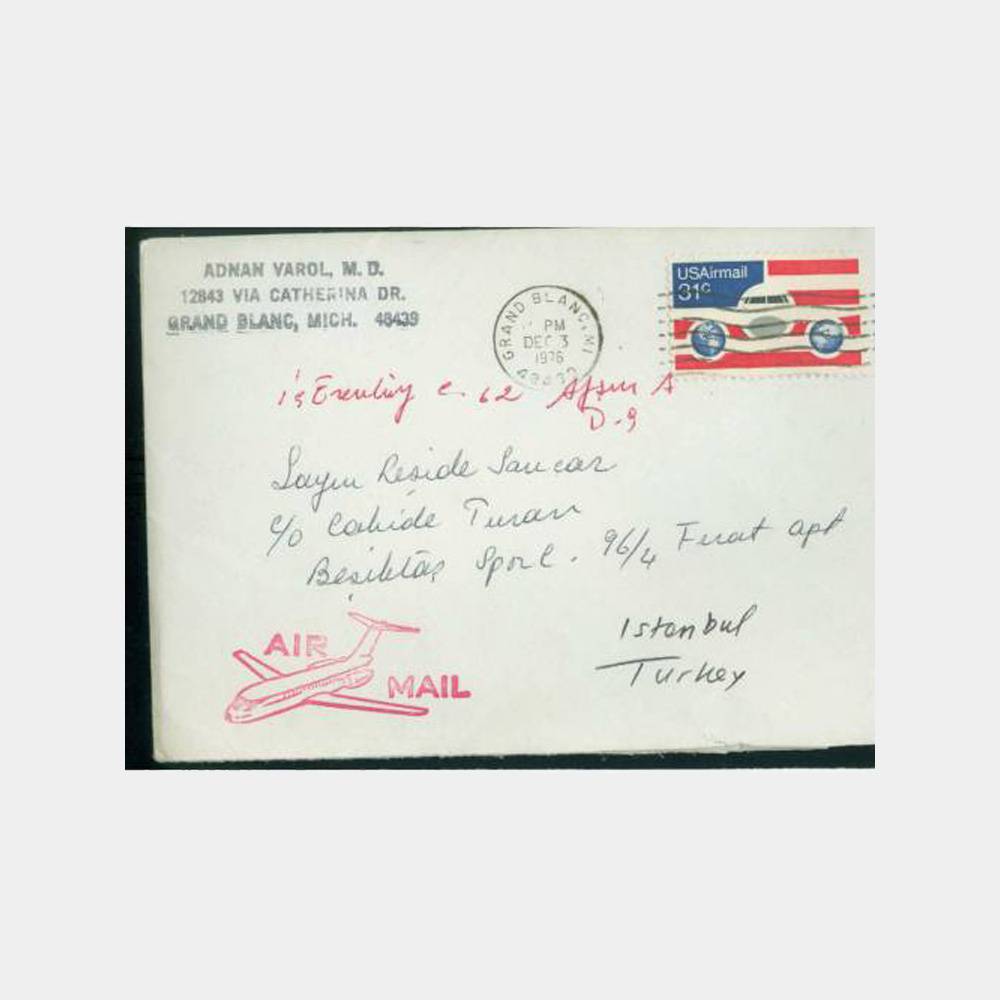 ADNAN VAROL, M. D.
12843 VIA CATHERINA DR.
GRAND BLANC, MICH. 48439
GRAND BLANC, MI
PM
DEC 3
1976
USAirmail
31c
62
D-9
Sayın Reside Sancar
c/o Cahide Turan
Beşiktaş Spor C. 96/4 Fırat apt
Istanbul
Turkey
AIR
MAIL